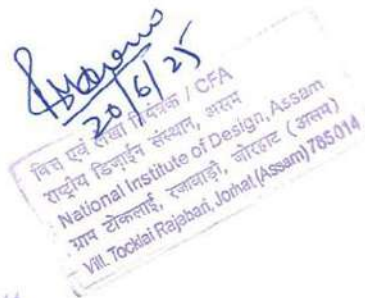 20/6/25
वित्त एवं लेखा नियंत्रक / CFA
राष्ट्रीय डिज़ाईन संस्थान, असम
National Institute of Design, Assam
ग्राम टोकलाई, रजाबाड़ी, जोरहाट (असम)
Vill. Tocklai Rajabari, Jorhat (Assam) 785014